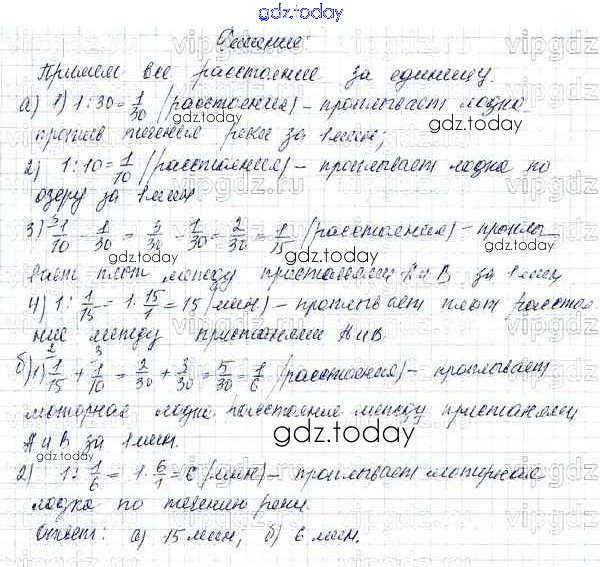 gdz.today
Решение:
Примем все расстояние за единицу.
а) 1) 1:30=1/30 (расстояния) – проплывает лодка
против течения реки за 1 мин;
2) 1:10=1/10 (расстояния) – проплывает лодка по
озеру за 1 мин
3) 1/10 - 1/30 = 3/30 - 1/30 = 2/30 = 1/15 (расстояния) – проплы-
вает плот между пристанями А и В за 1 мин
4) 1: 1/15 = 1 · 15/1 = 15 (мин) – проплывает плот расстоя-
ние между пристанями А и В.
б) 1) 1/15 + 1/10 = 2/30 + 3/30 = 5/30 = 1/6 (расстояния) – проплывает
моторная лодка расстояние между пристанями
А и В за 1 мин.
2) 1: 1/6 = 1 · 6/1 = 6 (мин) – проплывает моторная
лодка по течению реки.
Ответ: а) 15 мин; б) 6 мин.
gdz.today